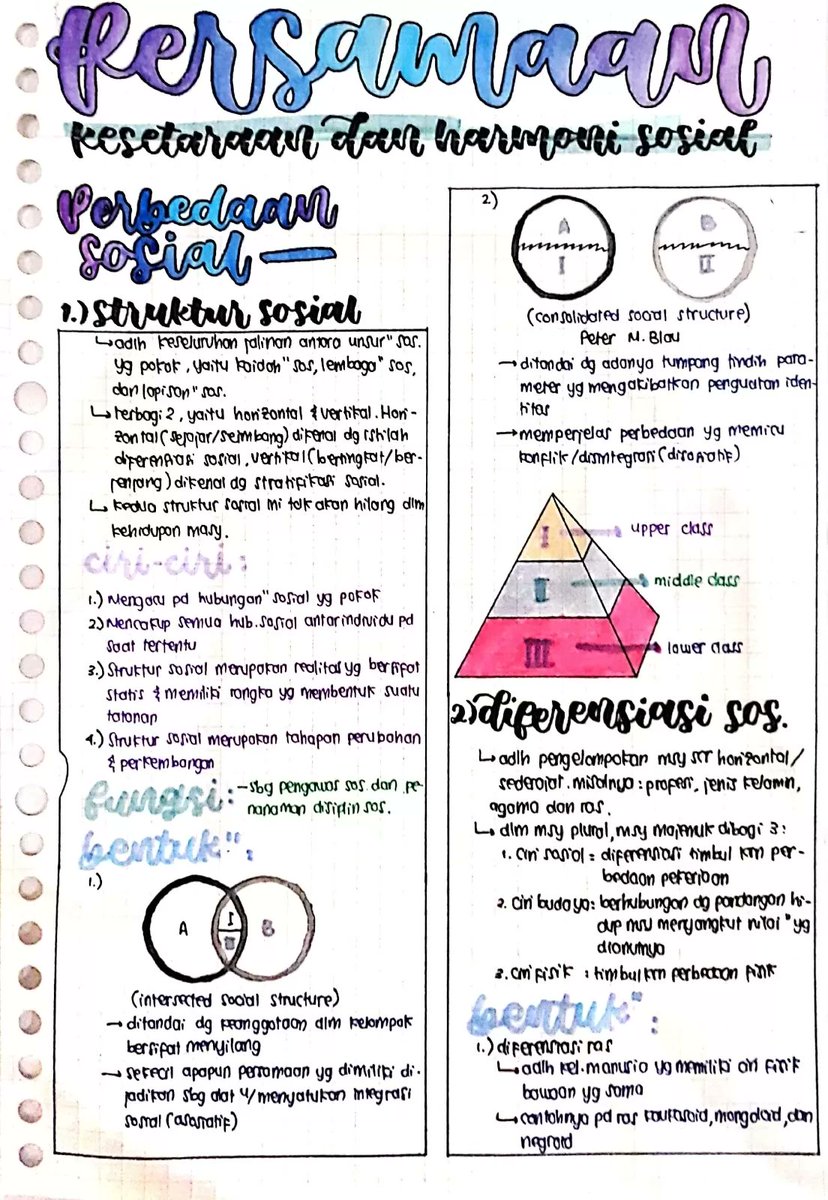 Persamaan
kesetaraan dan harmoni sosial
Perbedaan
sosial —
1.) Struktur sosial
↳ adlh keseluruhan jalinan antara unsur" sos.
yg pokok, yaitu kaidah" sos, lembaga" sos,
dan lapisan" sos.
↳ terbagi 2, yaitu horizontal & vertikal. Hori-
zontal (sejajar/seimbang) dikenal dg istilah
diferensiasi sosial, vertikal (bertingkat/ber-
jenjang) dikenal dg stratifikasi sosial.
↳ kedua struktur sosial ini tak akan hilang dlm
kehidupan masy.
ciri-ciri:
1.) Mengacu pd hubungan" sosial yg pokok
2.) Mencakup semua hub. sosial antarindividu pd
saat tertentu
3.) Struktur sosial merupakan realitas yg bersifat
statis & memiliki rangka yg membentuk suatu
tatanan
4.) Struktur sosial merupakan tahapan perubahan
& perkembangan
fungsi: - sbg pengawas sos. dan pe-
nanaman disiplin sos.
bentuk":
1.)
A I B
II
(intersected social structure)
→ ditandai dg keanggotaan dlm kelompok
bersifat menyilang
→ sekecil apapun persamaan yg dimiliki di-
jadikan sbg alat u/ menyatukan integrasi
sosial (asosiatif)
2)
A B
I II
(consolidated social structure)
Peter M. Blau
→ ditandai dg adanya tumpang tindih para-
meter yg mengakibatkan penguatan iden-
titas
→ memperjelas perbedaan yg memicu
konflik/disintegrasi (disosiatif)
I upper class
II middle class
III lower class
2) diferensiasi sos.
↳ adlh pengelompokan msy scr horizontal/
sederajat. misalnya: profesi, jenis kelamin,
agama dan ras.
↳ dlm msy plural, msy majemuk dibagi 3:
1. ciri sosial = diferensiasi timbul krn per-
bedaan pekerjaan
2. ciri budaya: berhubungan dg pandangan hi-
dup msy menyangkut nilai" yg
dianutnya
3. ciri fisik : timbul krn perbedaan fisik
bentuk":
1.) diferensiasi ras
↳ adlh kel. manusia yg memiliki ciri fisik
bawaan yg sama
↳ contohnya pd ras kaukasoid, mongoloid, dan
negroid